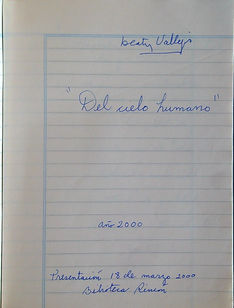 Beaty Vallejo
"Del cielo humano"
Año 2000
Presentación 18 de marzo 2000
Biblioteca